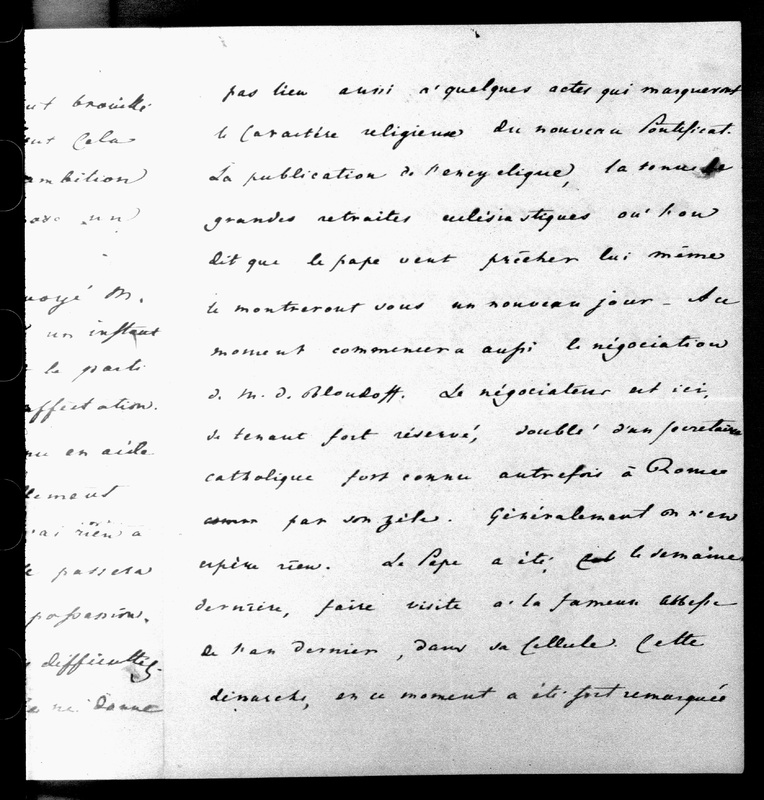 brouillé
cela
ambition
un
envoyé M.
un instant
le parti
affectation.
en aide
rien a
passera
possession.
difficultés.
ne donne
pas lieu aussi à quelques actes qui marqueront
le Caractère religieux du nouveau Pontificat.
La publication de l'encyclique, la tenue de
grandes retraites eclésiastiques où l'on
dit que le pape veut prêcher lui même
le montreront sous un nouveau jour - Au
moment commencera aussi la négociation
de M. de Bloudoff. Le négociateur est ici,
se tenant fort réservé, doublé d'un secretaire
catholique fort connu autrefois à Rome
par son zèle. Généralement on n'en
espère rien. Le Pape a été, la semaine
dernière, faire visite à la fameuse abbesse
de l'an dernier, dans sa Cellule. Cette
démarche, en ce moment a été fort remarquée